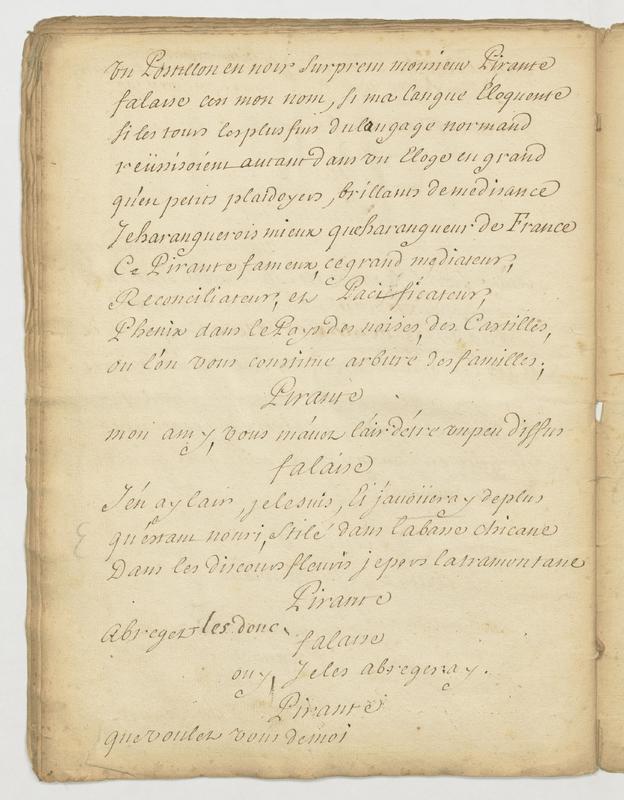 Vn Postillon en noir surprent monsieur Pirante
falaise est mon nom, si ma langue Eloquente
si les tours les plus fins du langage normand
reüssissoient autant dans vn Eloge en grand
qu'en petits plaidoyers, brillants de medisance
Je haranguerois mieux que harangueur de France
Ce Pirante fameux, ce grand mediateur,
Reconciliateur, et Pacificateur,
Phenix dans le Pays des noises, des Castilles,
ou l'on vous constitue arbitre des familles;
Pirante
mon amy, vous m'auez l'air d'étre vn peu diffus
falaise
J'en ay lair, je le suis, Et j'auoüeray de plus
qu'éstant nouri, stilé dans la basse chicane
Dans les discours fleuris je pers la tramontane
Pirante
Abregez les donc
falaise
ouy Je les abregeray.
Pirante
que voulez vous de moi